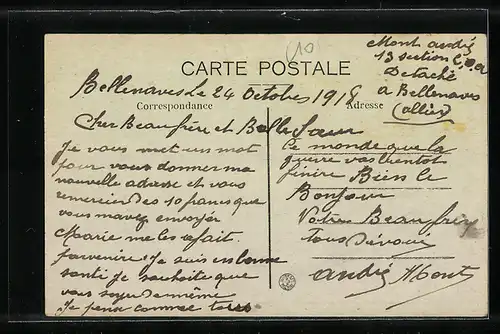 (10
Mont andré
13 section C.O.A
Detaché
a Bellenaves
(allier)
CARTE POSTALE
Bellenaves Le 24 Octobres 1918
Correspondance
Adresse
Cher Beaufrère et Belle Sœur
Je vous met un mot
pour vous donner ma
nouvelle adresse et vous
remercier des 10 francs que
vous mavez envoyer
Marie me les a fait
parvenire. Je suis en bonne
santé je souhaite que
vous soyez de même
Je pense comme tous
Le monde que la
guerre vas bientot
finire Biens le
Bonjour
Votre Beaufrère
tous Dévoue
andré Mont